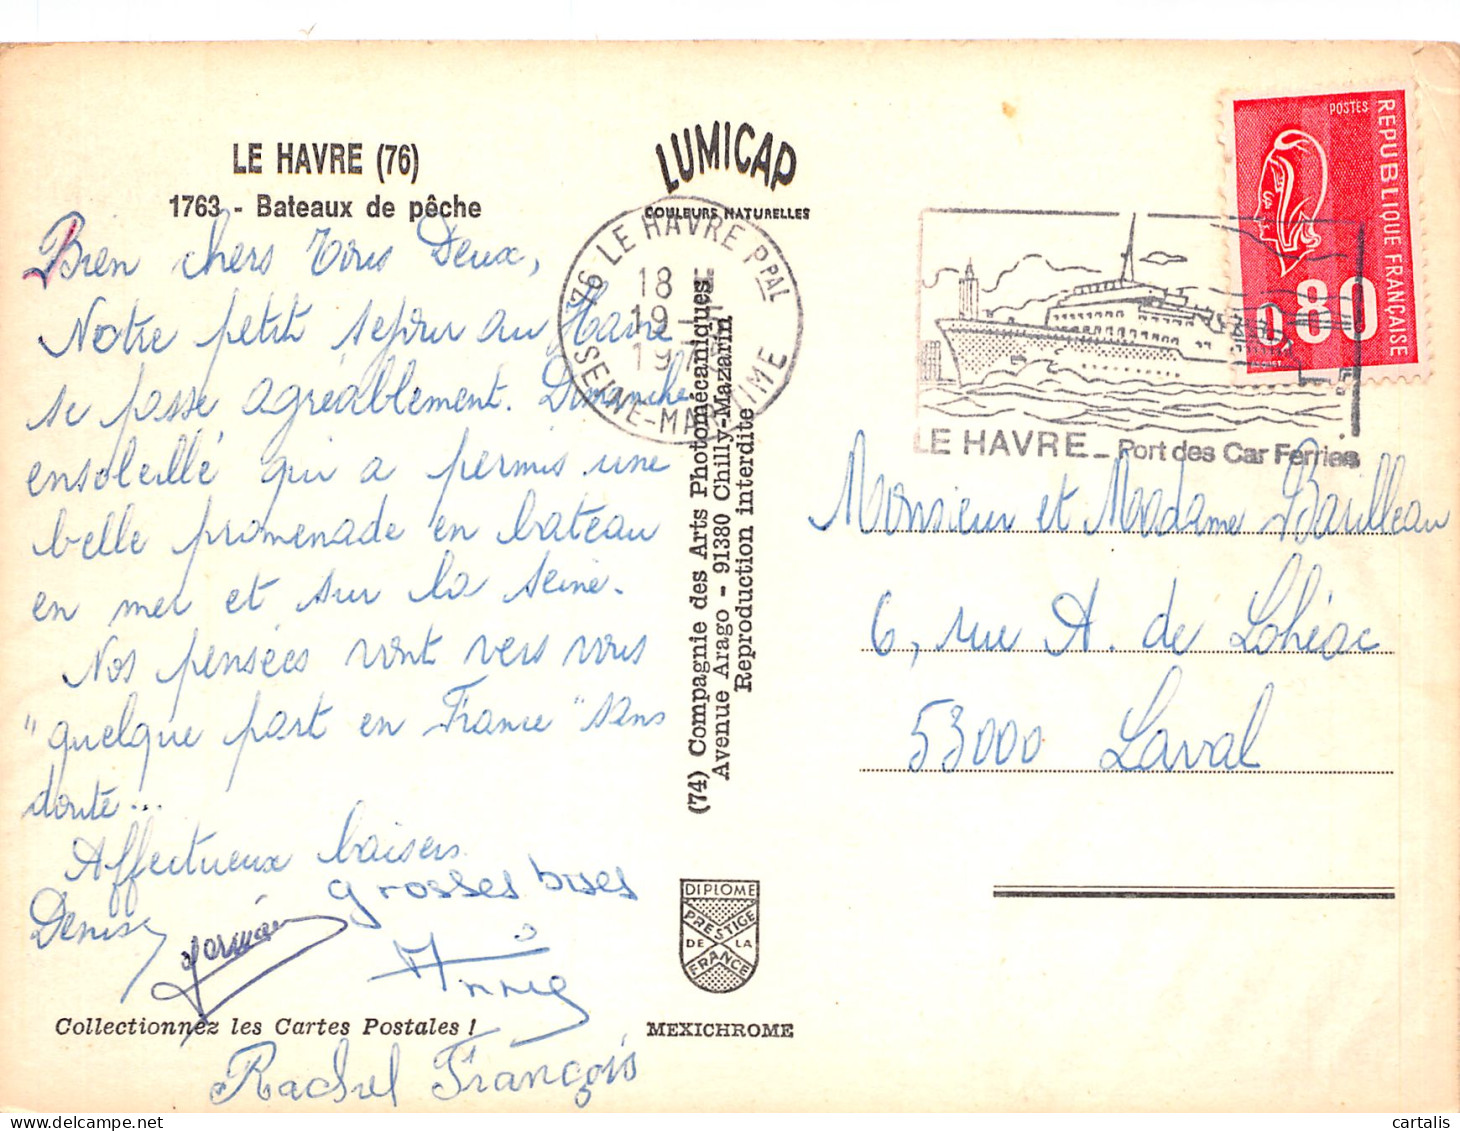 LE HAVRE (76)
1763 - Bateaux de pêche
Bien chers Vous Deux,
Notre petit séjour au Havre
se passe agréablement. Dimanche
ensoleillé qui a permis une
belle promenade en bateau
en mer et sur la Seine.
Nos pensées vont vers vous
"quelque part en France" sans
doute...
Affectueux baisers
grosses bises
Denise
Germain
Annie
Collectionnez les Cartes Postales !
Rachel François
LUMICAP
COULEURS NATURELLES
76 LE HAVRE PPAL
18
19
19
SEINE-MARITIME
(74) Compagnie des Arts Photomécaniques
Avenue Arago - 91380 Chilly-Mazarin
Reproduction interdite
DIPLOME
PRESTIGE
DE LA
FRANCE
MEXICHROME
POSTES
REPUBLIQUE FRANÇAISE
0,80
LE HAVRE - Port des Car Ferries
Monsieur et Madame Barilleau
6, rue A. de Lohéac
53000 Laval
cartalis